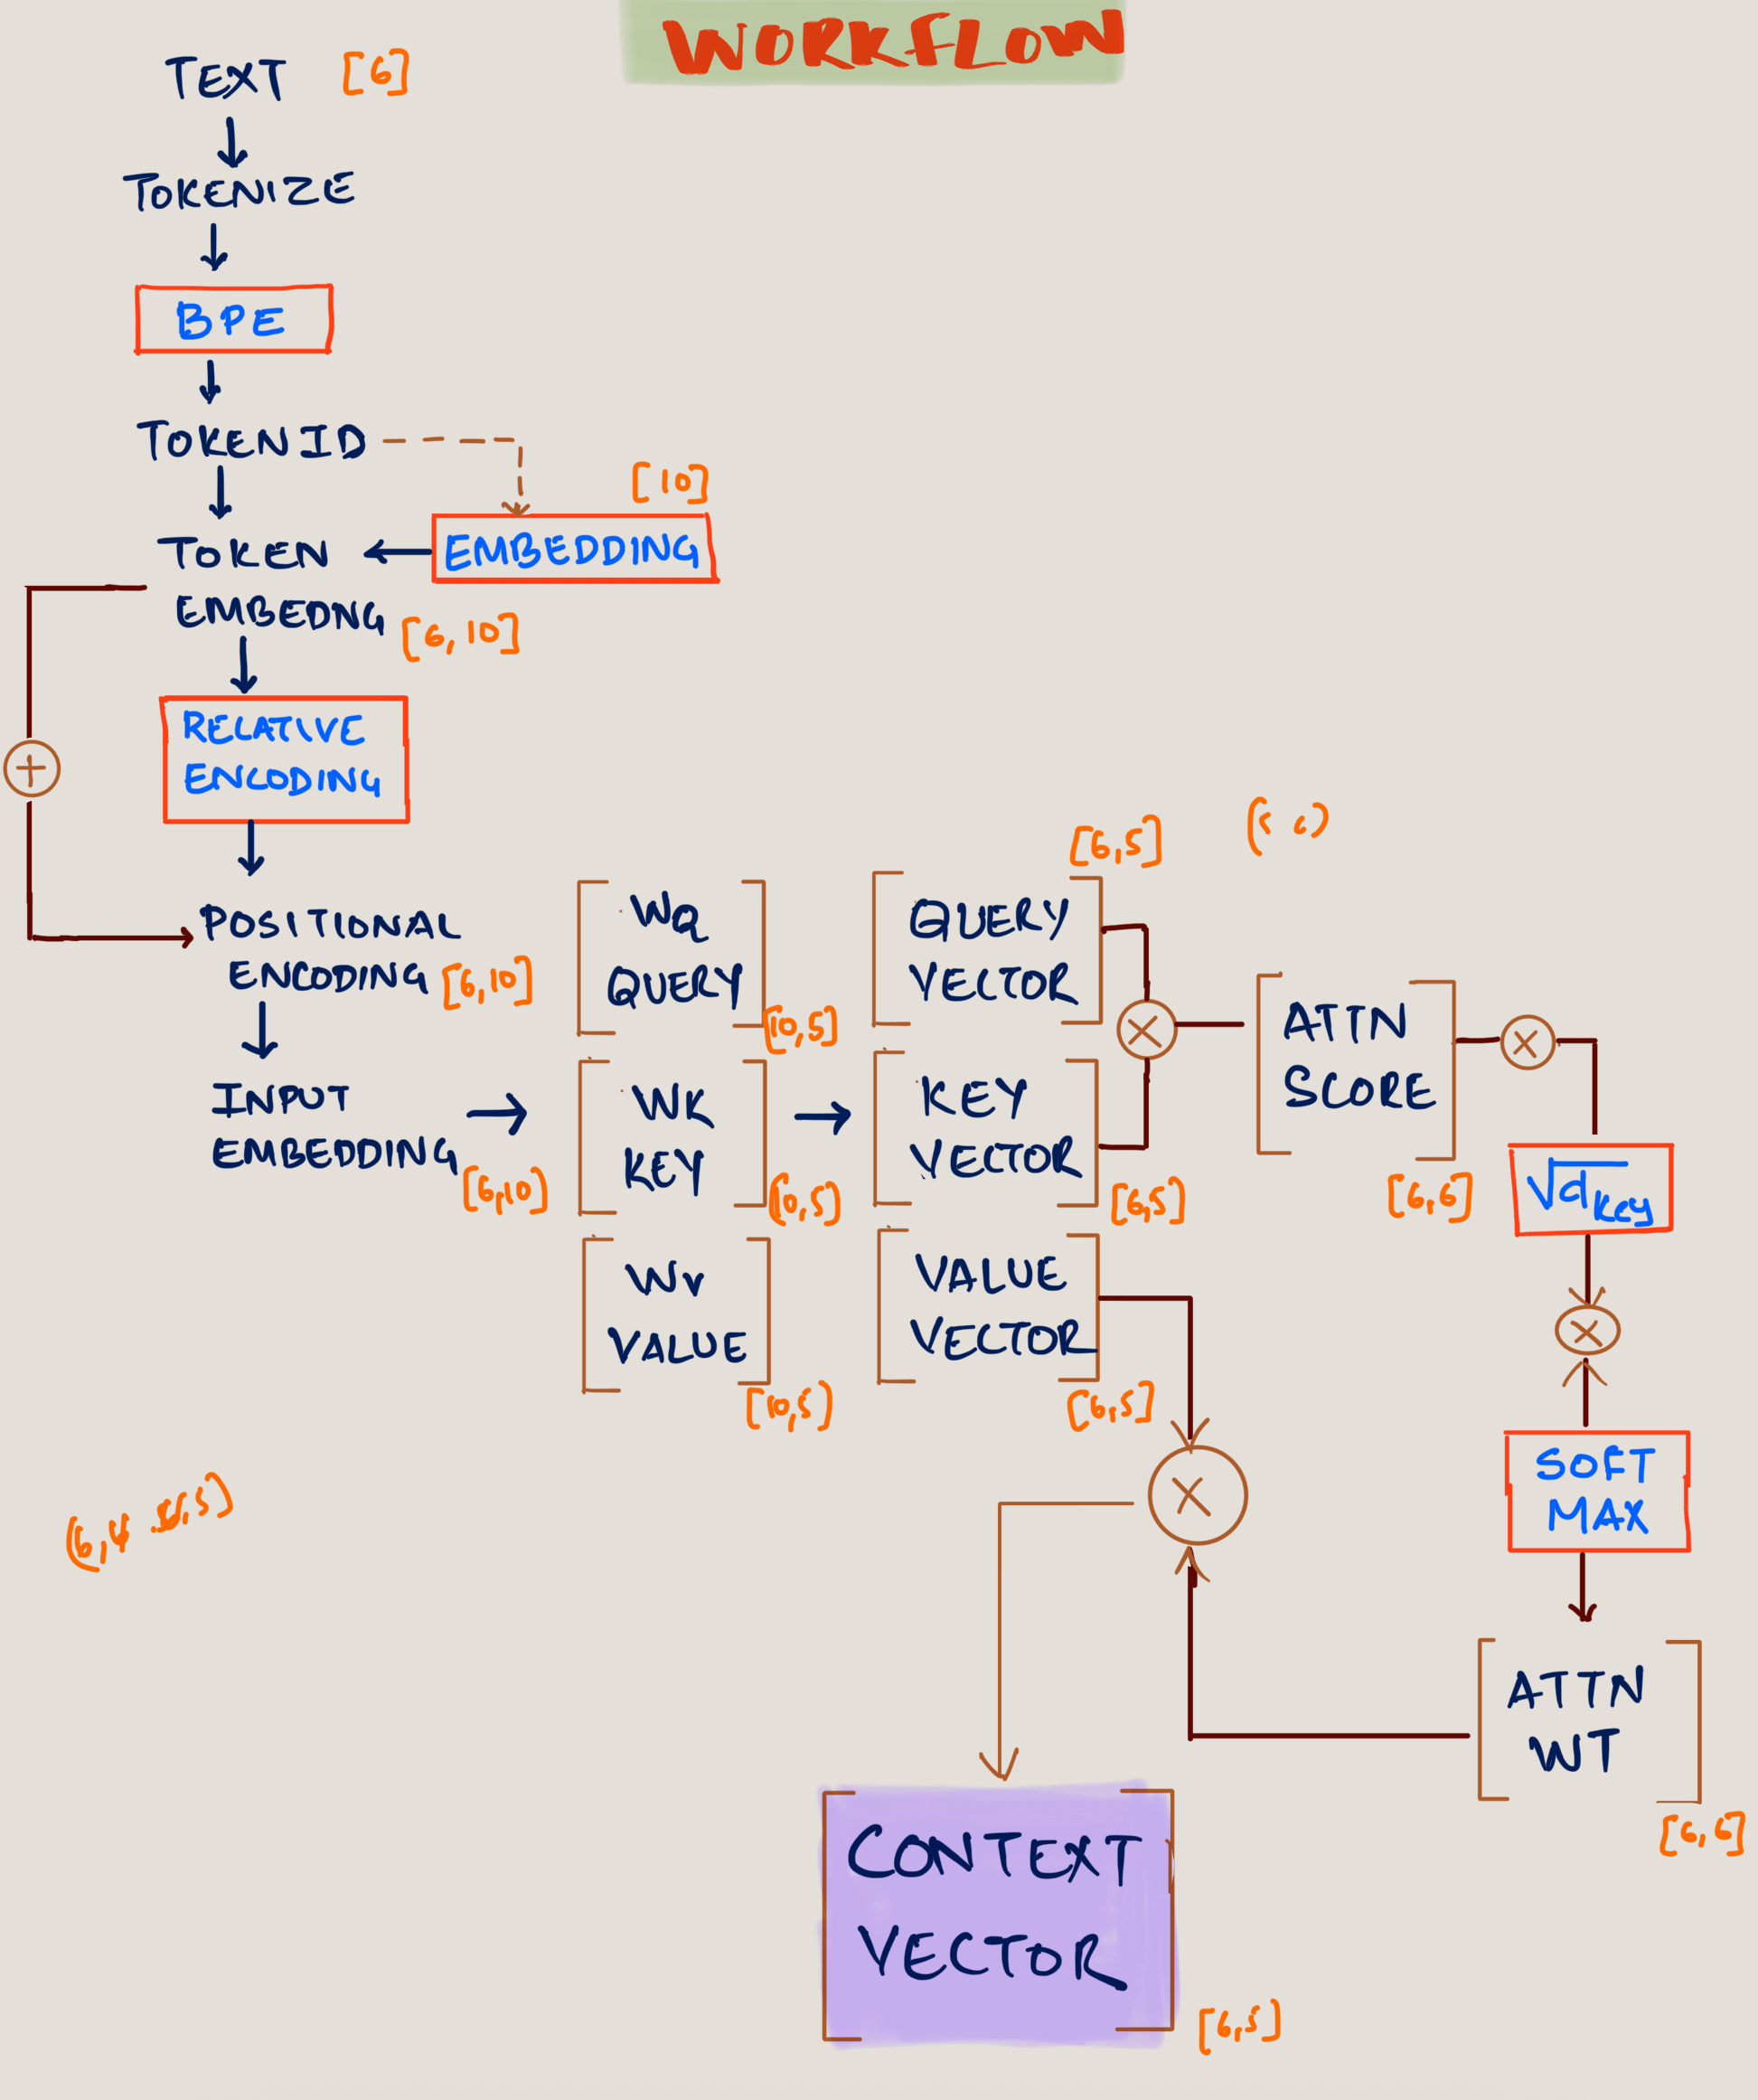 WORKFLOW
TEXT [6]
TOKENIZE
BPE
TOKEN ID
[10]
TOKEN
EMBEDDING
EMBEDNG
[6, 10]
RELATIVE
ENCODING
+
POSITIONAL
ENCODING [6,10]
INPUT
EMBEDDING
[6,10]
WQ
QUERY
[10,5]
WK
KEY
[10,5]
Wv
VALUE
[10,5]
[6,5]
QUERY
VECTOR
KEY
VECTOR
[6,5]
VALUE
VECTOR
[6,5]
×
ATTN
SCORE
[6,6]
×
√dkey
×
SOFT
MAX
ATTN
WT
[6,6]
×
CONTEXT
VECTOR
[6,5]